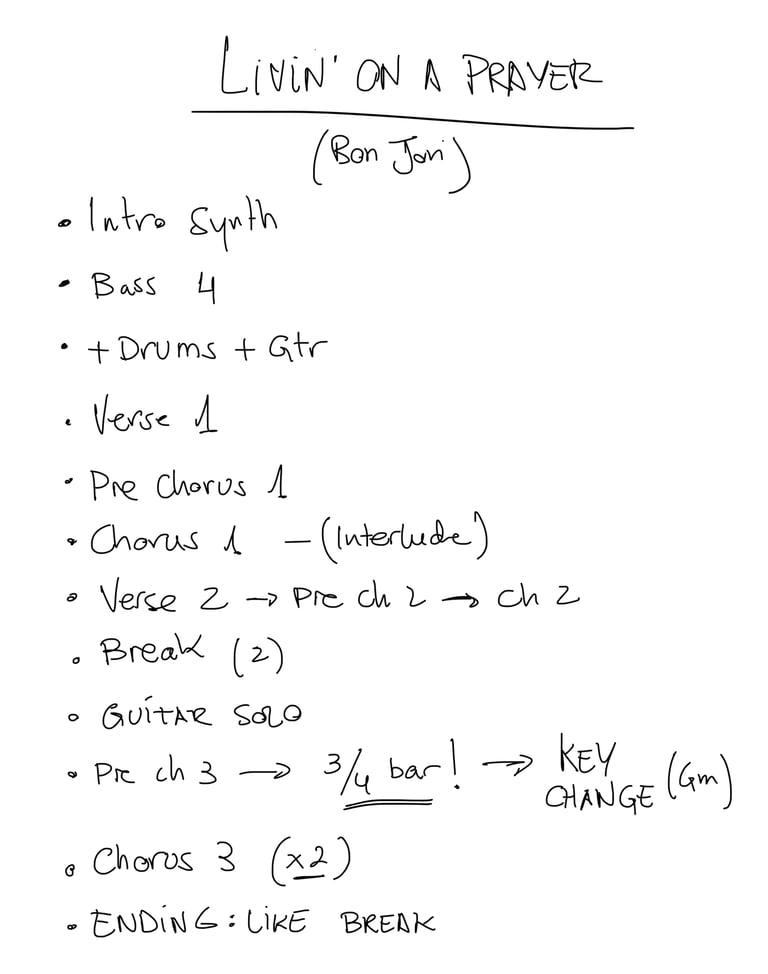 LIVIN' ON A PRAYER
(Bon Jovi)
• Intro Synth
• Bass 4
• + Drums + Gtr
• Verse 1
• Pre Chorus 1
• Chorus 1 – (Interlude)
• Verse 2 → Pre ch 2 → ch 2
• Break (2)
• GUÍTAR SOLO
• Pre ch 3 → 3/4 bar! → KEY CHANGE (Gm)
• Chorus 3 (x2)
• ENDING: LIKE BREAK